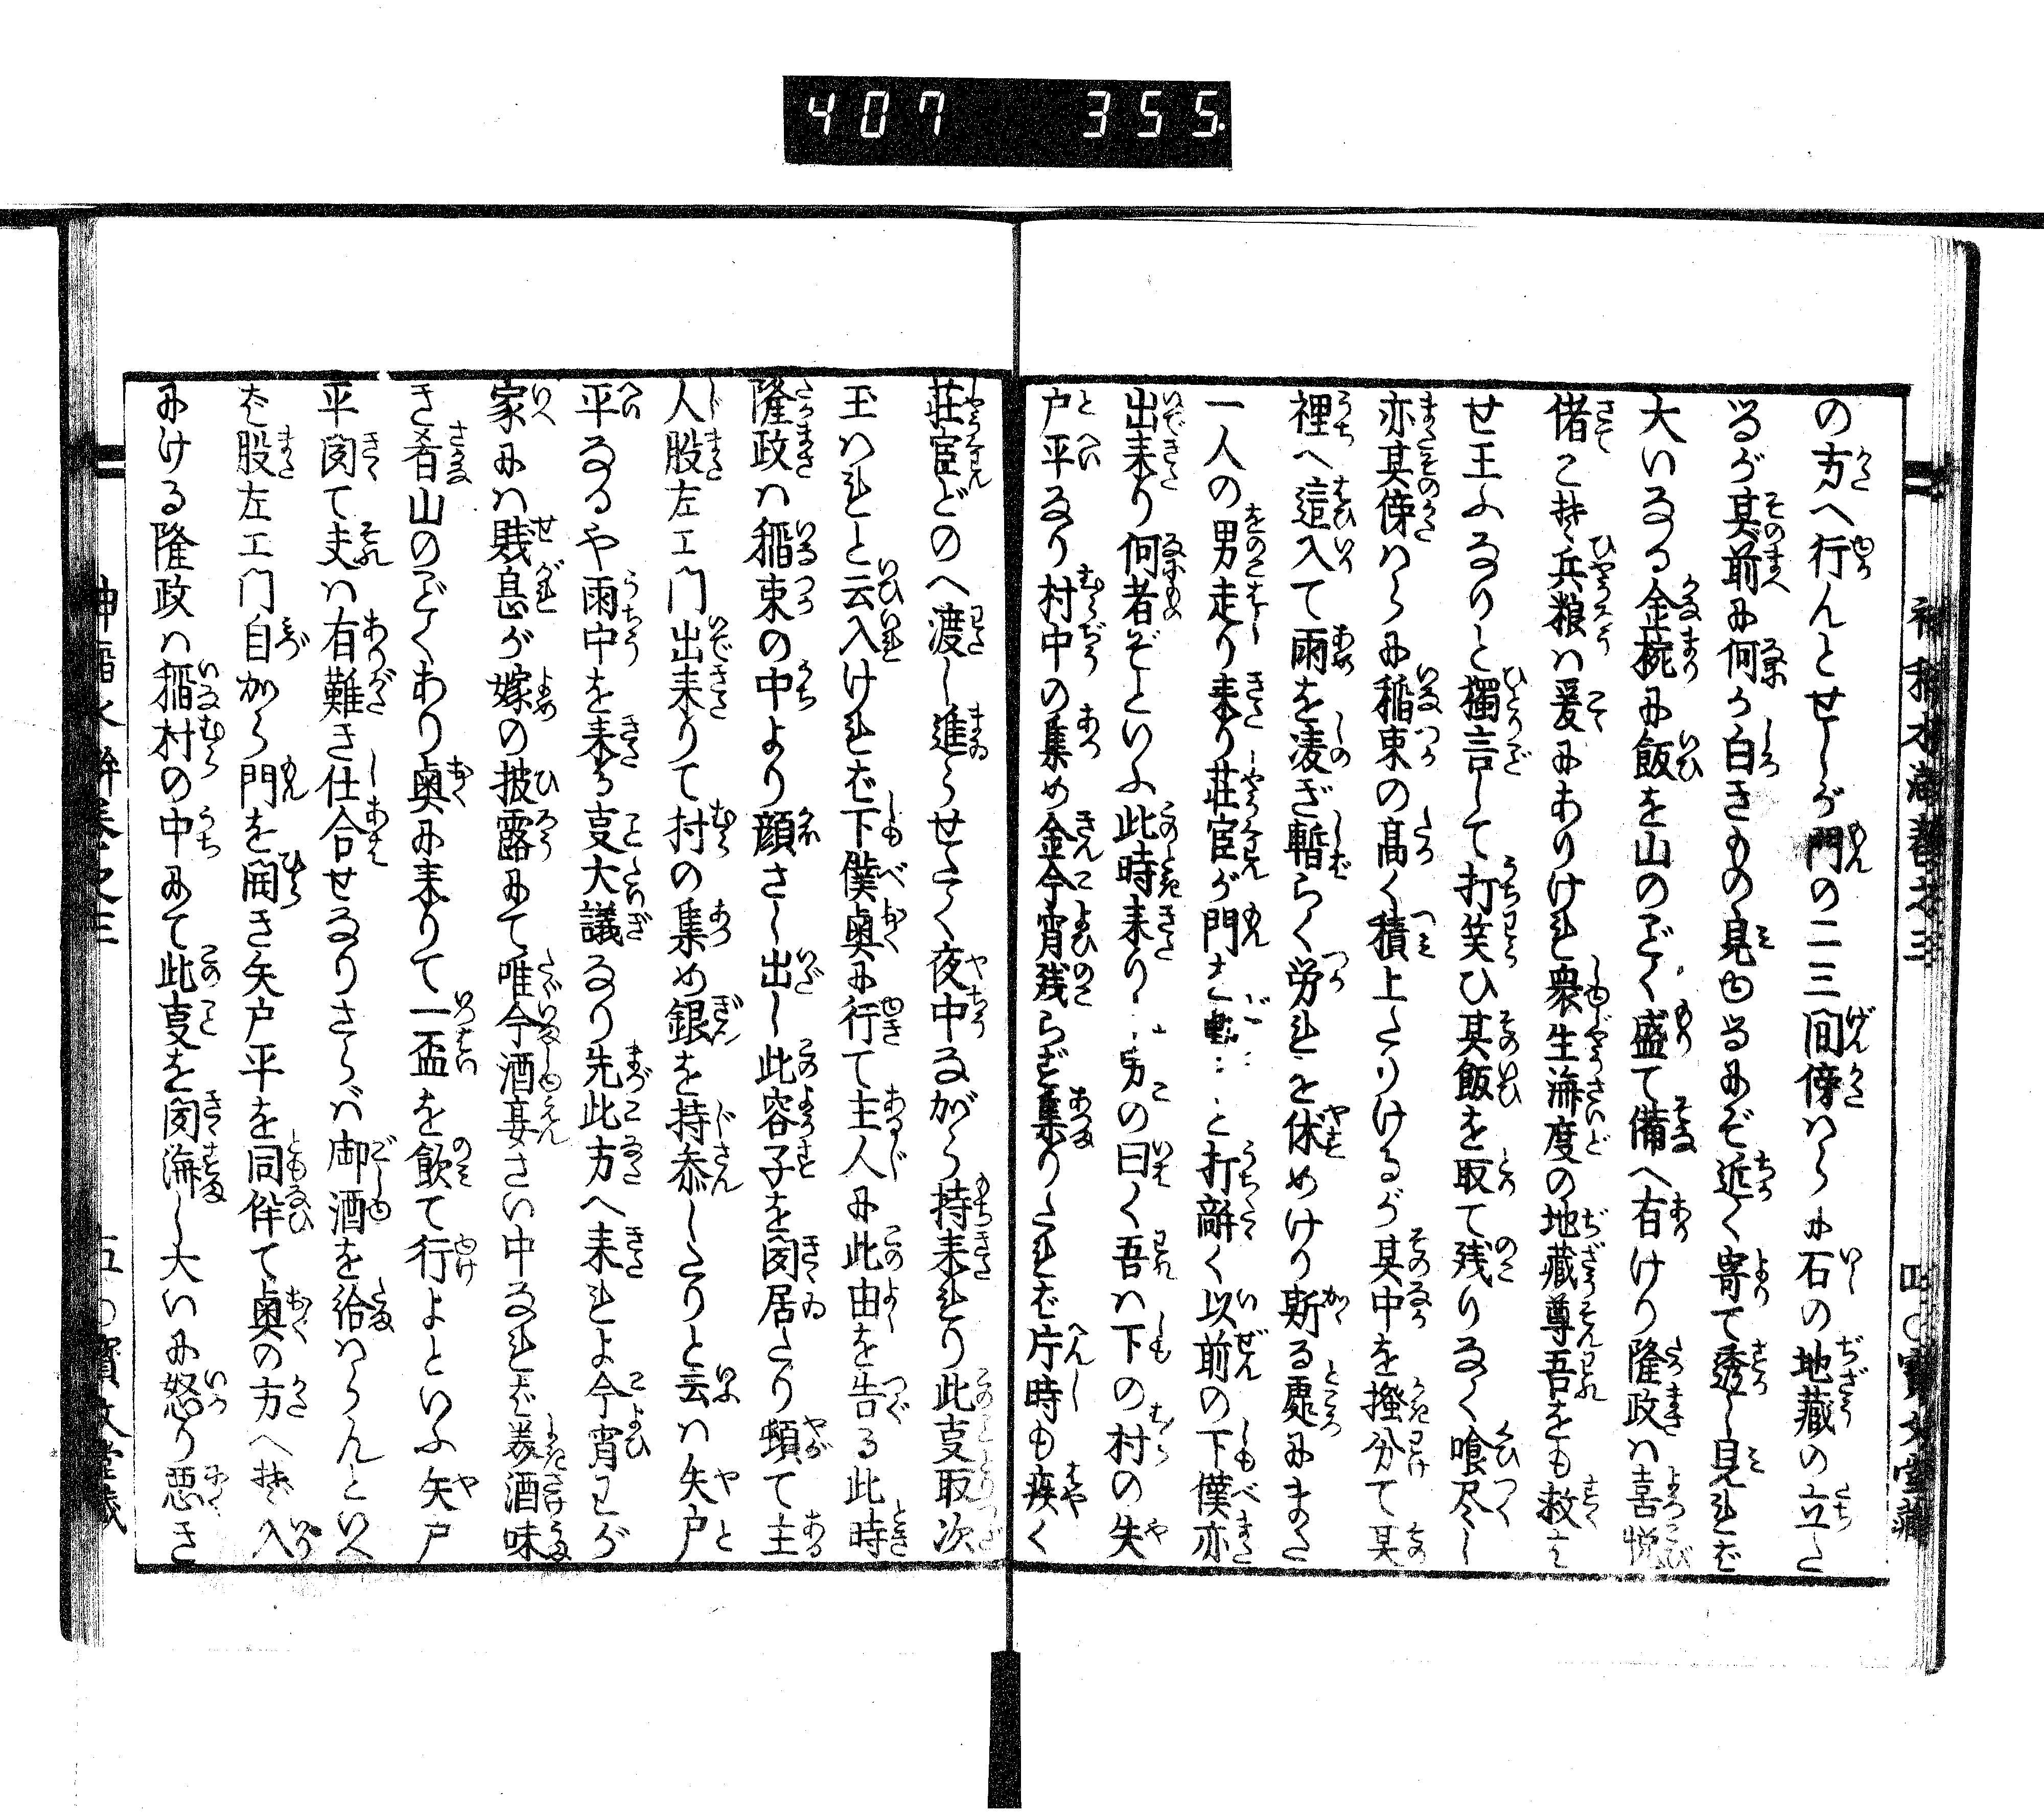 407 355
の方へ行んとせしが門の二三間傍はらに石の地藏の立た
るが其前に何か白きもの見ゆるにぞ近く寄て透し見れば
大いなる金椀に飯を山のごく盛て備へ有けり隆政は喜悦
偖こそ兵粮は爰にありけれ衆生済度の地藏尊吾をも救ハ
せ玉ふなりと獨言して打笑ひ其飯を取て残りなく喰尽し
亦其傍はらに稲束の高く積上たりけるが其中を掻分て其
裡へ這入て雨を凌ぎ暫らく労れを休めけり斯る處にまた
一人の男走り来り荘官が門を と打敲く以前の下僕亦
出来り何者ぞといふ此時来り 男の曰く吾は下の村の矢
戸平なり村中の集め金今宵残らず集りたれば片時も疾く
荘官どのへ渡し進らせたく夜中ながら持来れり此叓取次
玉はれと云入ければ下僕奥に行て主人に此由を告る此時
隆政は稲束の中より顔さし出し此容子を聞居たり頓て主
人股左エ門出来りて村の集め銀を持参したりと云は矢戸
平なるや雨中を来る叓大議なり先此方へ来れよ今宵わが
家にハ賎息が嫁の披露にて唯今酒宴さい中なれば美酒味
き肴山のごくあり奥に来りて一盃を飲て行よといふ矢戸
平聞て夫は有難き仕合せなりさらば御酒を給はらんといへ
ば股左エ門自から門を開き矢戸平を同伴て奥の方へぞ入
にける隆政は稲村の中にて此叓を聞済し大いに怒り悪き
四〇寳文堂藏